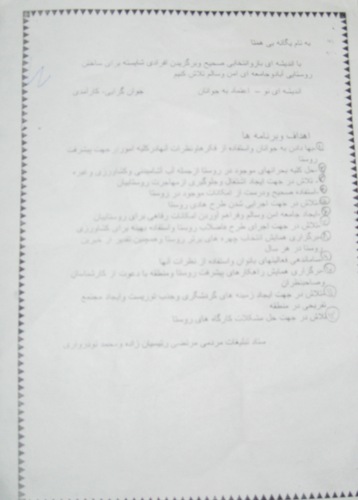 به نام یگانه بی همتا
با اندیشه ای باز و انتخابی صحیح و برگزیدن افرادی شایسته برای ساختن
روستایی آباد و جامعه ای امن و سالم تلاش کنیم
اندیشه ای نو - اعتماد به جوانان جوان گرایی، کارآمدی
اهداف وبرنامه ها
بها دادن به جوانان واستفاده از فکرها ونظرات آنها در کلیه امور در جهت پیشرفت
روستا
حل کلیه بحرانهای موجود در روستا از جمله آب آشامیدنی وکشاورزی و غیره
تلاش در جهت ایجاد اشتغال وجلوگیری از مهاجرت روستاییان
استفاده صحیح ودرست از امکانات موجود در روستا
تلاش در جهت اجرایی شدن طرح هادی روستا
ایجاد جامعه امن وسالم وفراهم آوردن امکانات رفاهی برای روستاییان
تلاش در جهت اجرای طرح فاضلاب روستا واستفاده بهینه برای کشاورزی
برگزاری همایش انتخاب چهره های برتر روستا وهمچنین تقدیر از
روستا در هر سال
ساماندهی فعالیتهای بانوان واستفاده از نظرات آنها
برگزاری همایش راهکارهای پیشرفت روستا ومنطقه با دعوت از کارشناسان
وصاحبنظران
تلاش در جهت ایجاد زمینه های گردشگری وجذب توریست وایجاد مجتمع
تفریحی در منطقه
تلاش در جهت حل مشکلات کارگاه های روستا
ستاد تبلیغات مردمی مرتضی زاده ومحمد